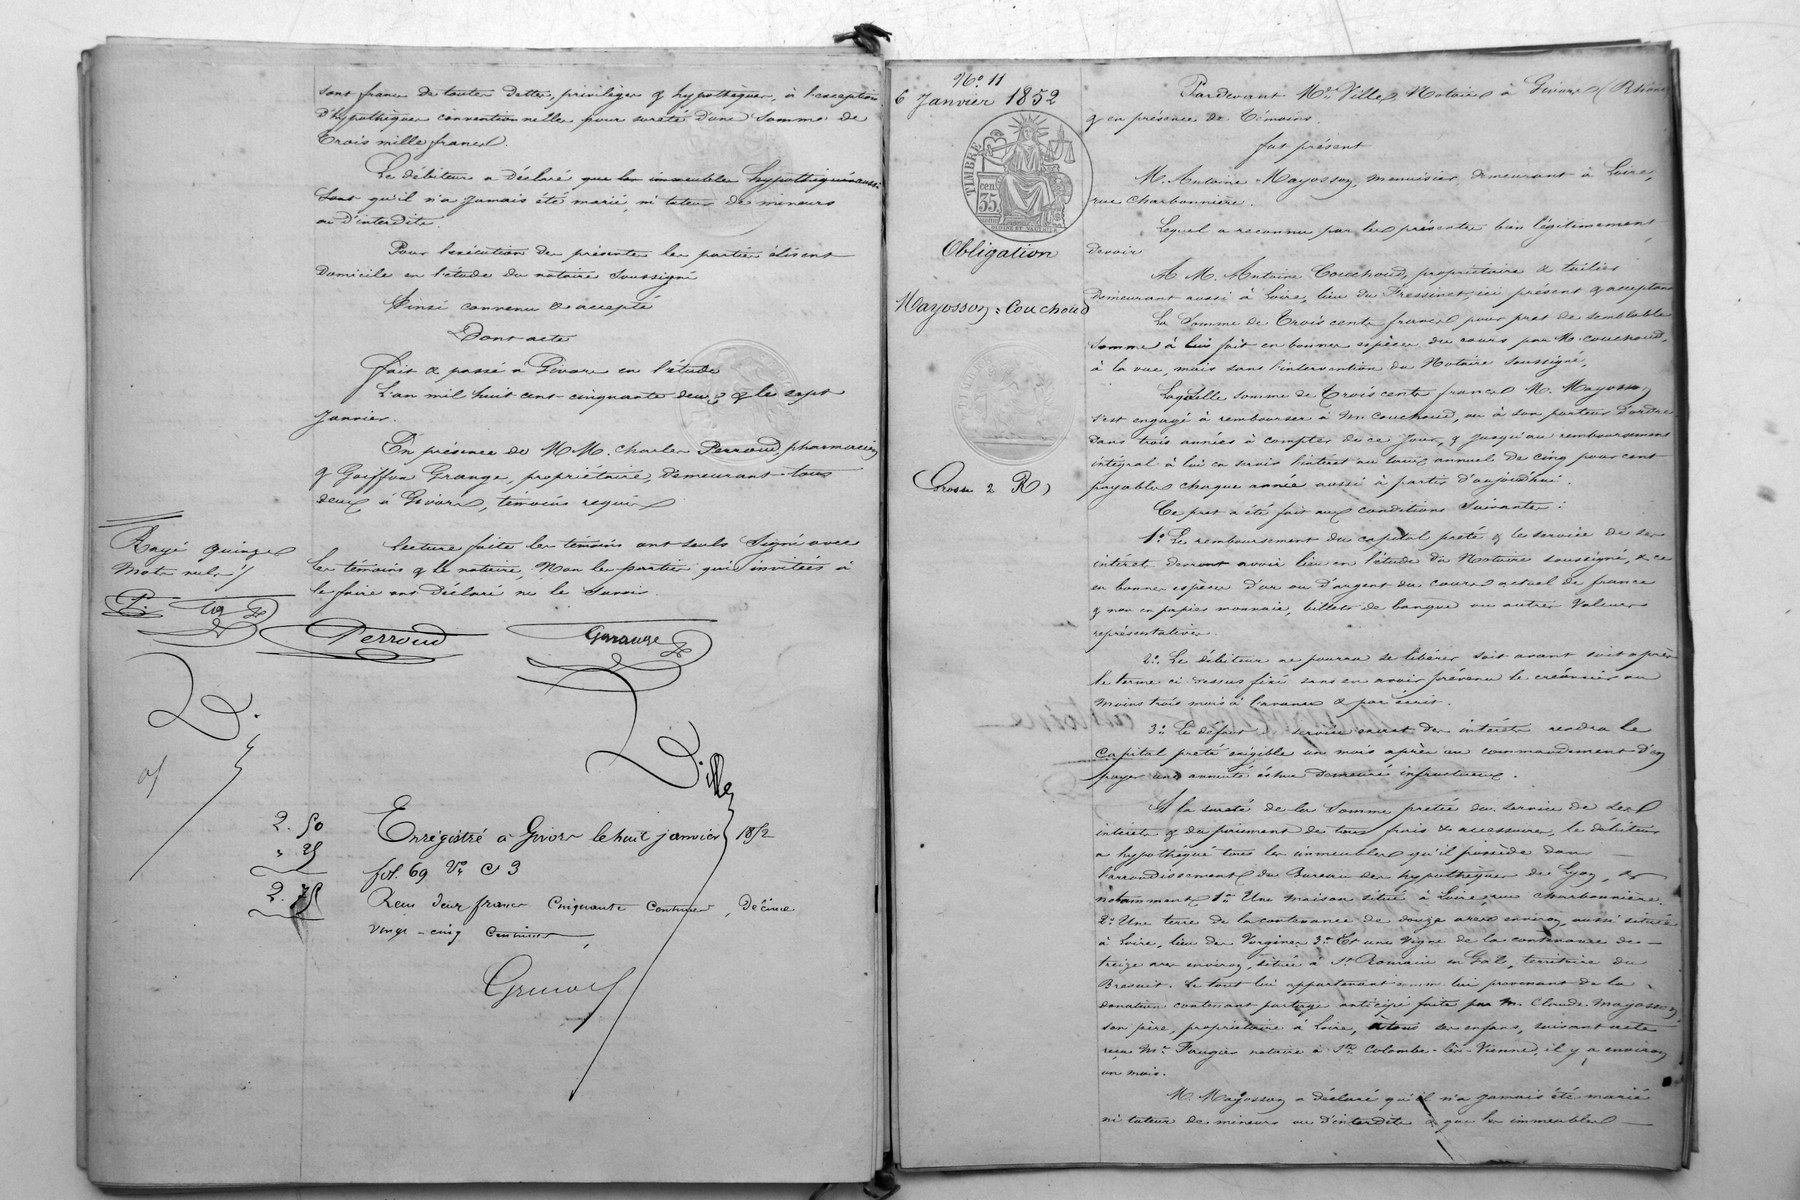 sont francs de toutes dettes, privilèges & hypothèques, à l'exception
d'hypothèque conventionnelle pour sureté d'une somme de
Trois mille francs.
Le débiteur a déclaré que les immeubles hypothiqués
sont qu'il n'a jamais été marié, ni tuteur de mineurs
ou d'interdits.
Pour l'exécution des présentes les parties élisent
Domicile en l'étude du notaire soussigné
Ainsi convenu & accepté
Dont acte
fait & passé à Givors en l'étude
L'an mil huit cent cinquante deux & le sept
Janvier.
En présence de MM. Charles Perroud, pharmacien
& Goiffon Grange, propriétaire, demeurant tous
deux à Givors, témoins requis
Lecture faite les témoins ont seuls signé avec
les témoins & le notaire, Non les parties qui invitées à
le faire ont Déclaré ne le Savoir.
Rayé quinze
Mots nuls
Perroud
Grange
Ville
2. 50
" 25
2. 75
Enrégistré a Givors le huit janvier 1852
fol. 69 Vo c 3
Reçu deux francs Cinquante Centimes, Décime
vingt-cinq Centimes,
No 11
6 Janvier 1852
TIMBRE
35 cent
Obligation
Mayosson = Couchoud
Grosse 2 R
Pardevant Me Ville, Notaire à Givors (Rhône)
& en présence de Témoins.
fut présent
M. Antoine Mayosson, menuisier, demeurant à Loire,
rue Charbonnière.
Lequel a reconnu par les présentes bien légitimement
devoir
A M. Antoine Couchoud, propriétaire & tuilier
demeurant aussi à Loire, lieu du Fressinet, ici présent & acceptant
La Somme de Trois cents francs pour pret de semblable
somme à lui fait en bonnes espèces du cours par M. Couchoud,
à la vue, mais sans l'intervention du Notaire soussigné,
Laquelle somme de Trois cents francs M. Mayosson
s'est engagé à rembourser à M. Couchoud, ou à son porteur d'ordre
Dans trois années à compter de ce jour, & jusqu'au remboursement
intégral à lui en servir l'intéret au taux annuel de cinq pour cent
payable chaque année aussi à partir d'aujourd'hui.
Ce pret a été fait aux conditions Suivantes :
1o Le remboursement du capital prété & le service de ses
intéret devront avoir lieu en l'étude du Notaire soussigné, & ce
en bonnes espèces d'or ou d'argent du cours actuel de france
& non en papier monnaie, billets de banque ou autres Valeurs
représentatives.
2o Le débiteur ne pourra se libérer soit avant soit après
le terme ci dessus fixé sans en avoir prévenu le créancier au
moins trois mois à l'avance & par écrit.
3o Le défaut de service exact des intérêts rendra le
Capital preté exigible un mois après un commandement d'en
payer une annuité échue demeuré infructueux.
A la sureté de la Somme pretée du service de ses
intérets & du paiement de tous frais & accessoires, le débiteur
a hypothéqué tous les immeubles qu'il possède dans
l'arrondissement du Bureau des hypothèques de Lyon, &
notamment 1o Une maison située à Loire, rue Charbonnière.
2o Une terre de la contenance de douze ares environ, aussi située
à Loire, lieu des Vorgines 3o Et une Vigne de la contenance de
treize ares environ, située à St Romain en Gal, territoire du
Bresuit. Le tout lui appartenant comme lui provenant de la
donation contenant partage anticipé faite par M. Claude Mayosson
son père, propriétaire à Loire, à tous ses enfans, suivant acte
reçu Me Faugier notaire à Ste Colombe-lès-Vienne, il y a environ
un mois.
M. Mayosson a déclaré qu'il n'a jamais été marié
ni tuteur de mineurs ou d'interdits & que les immeubles